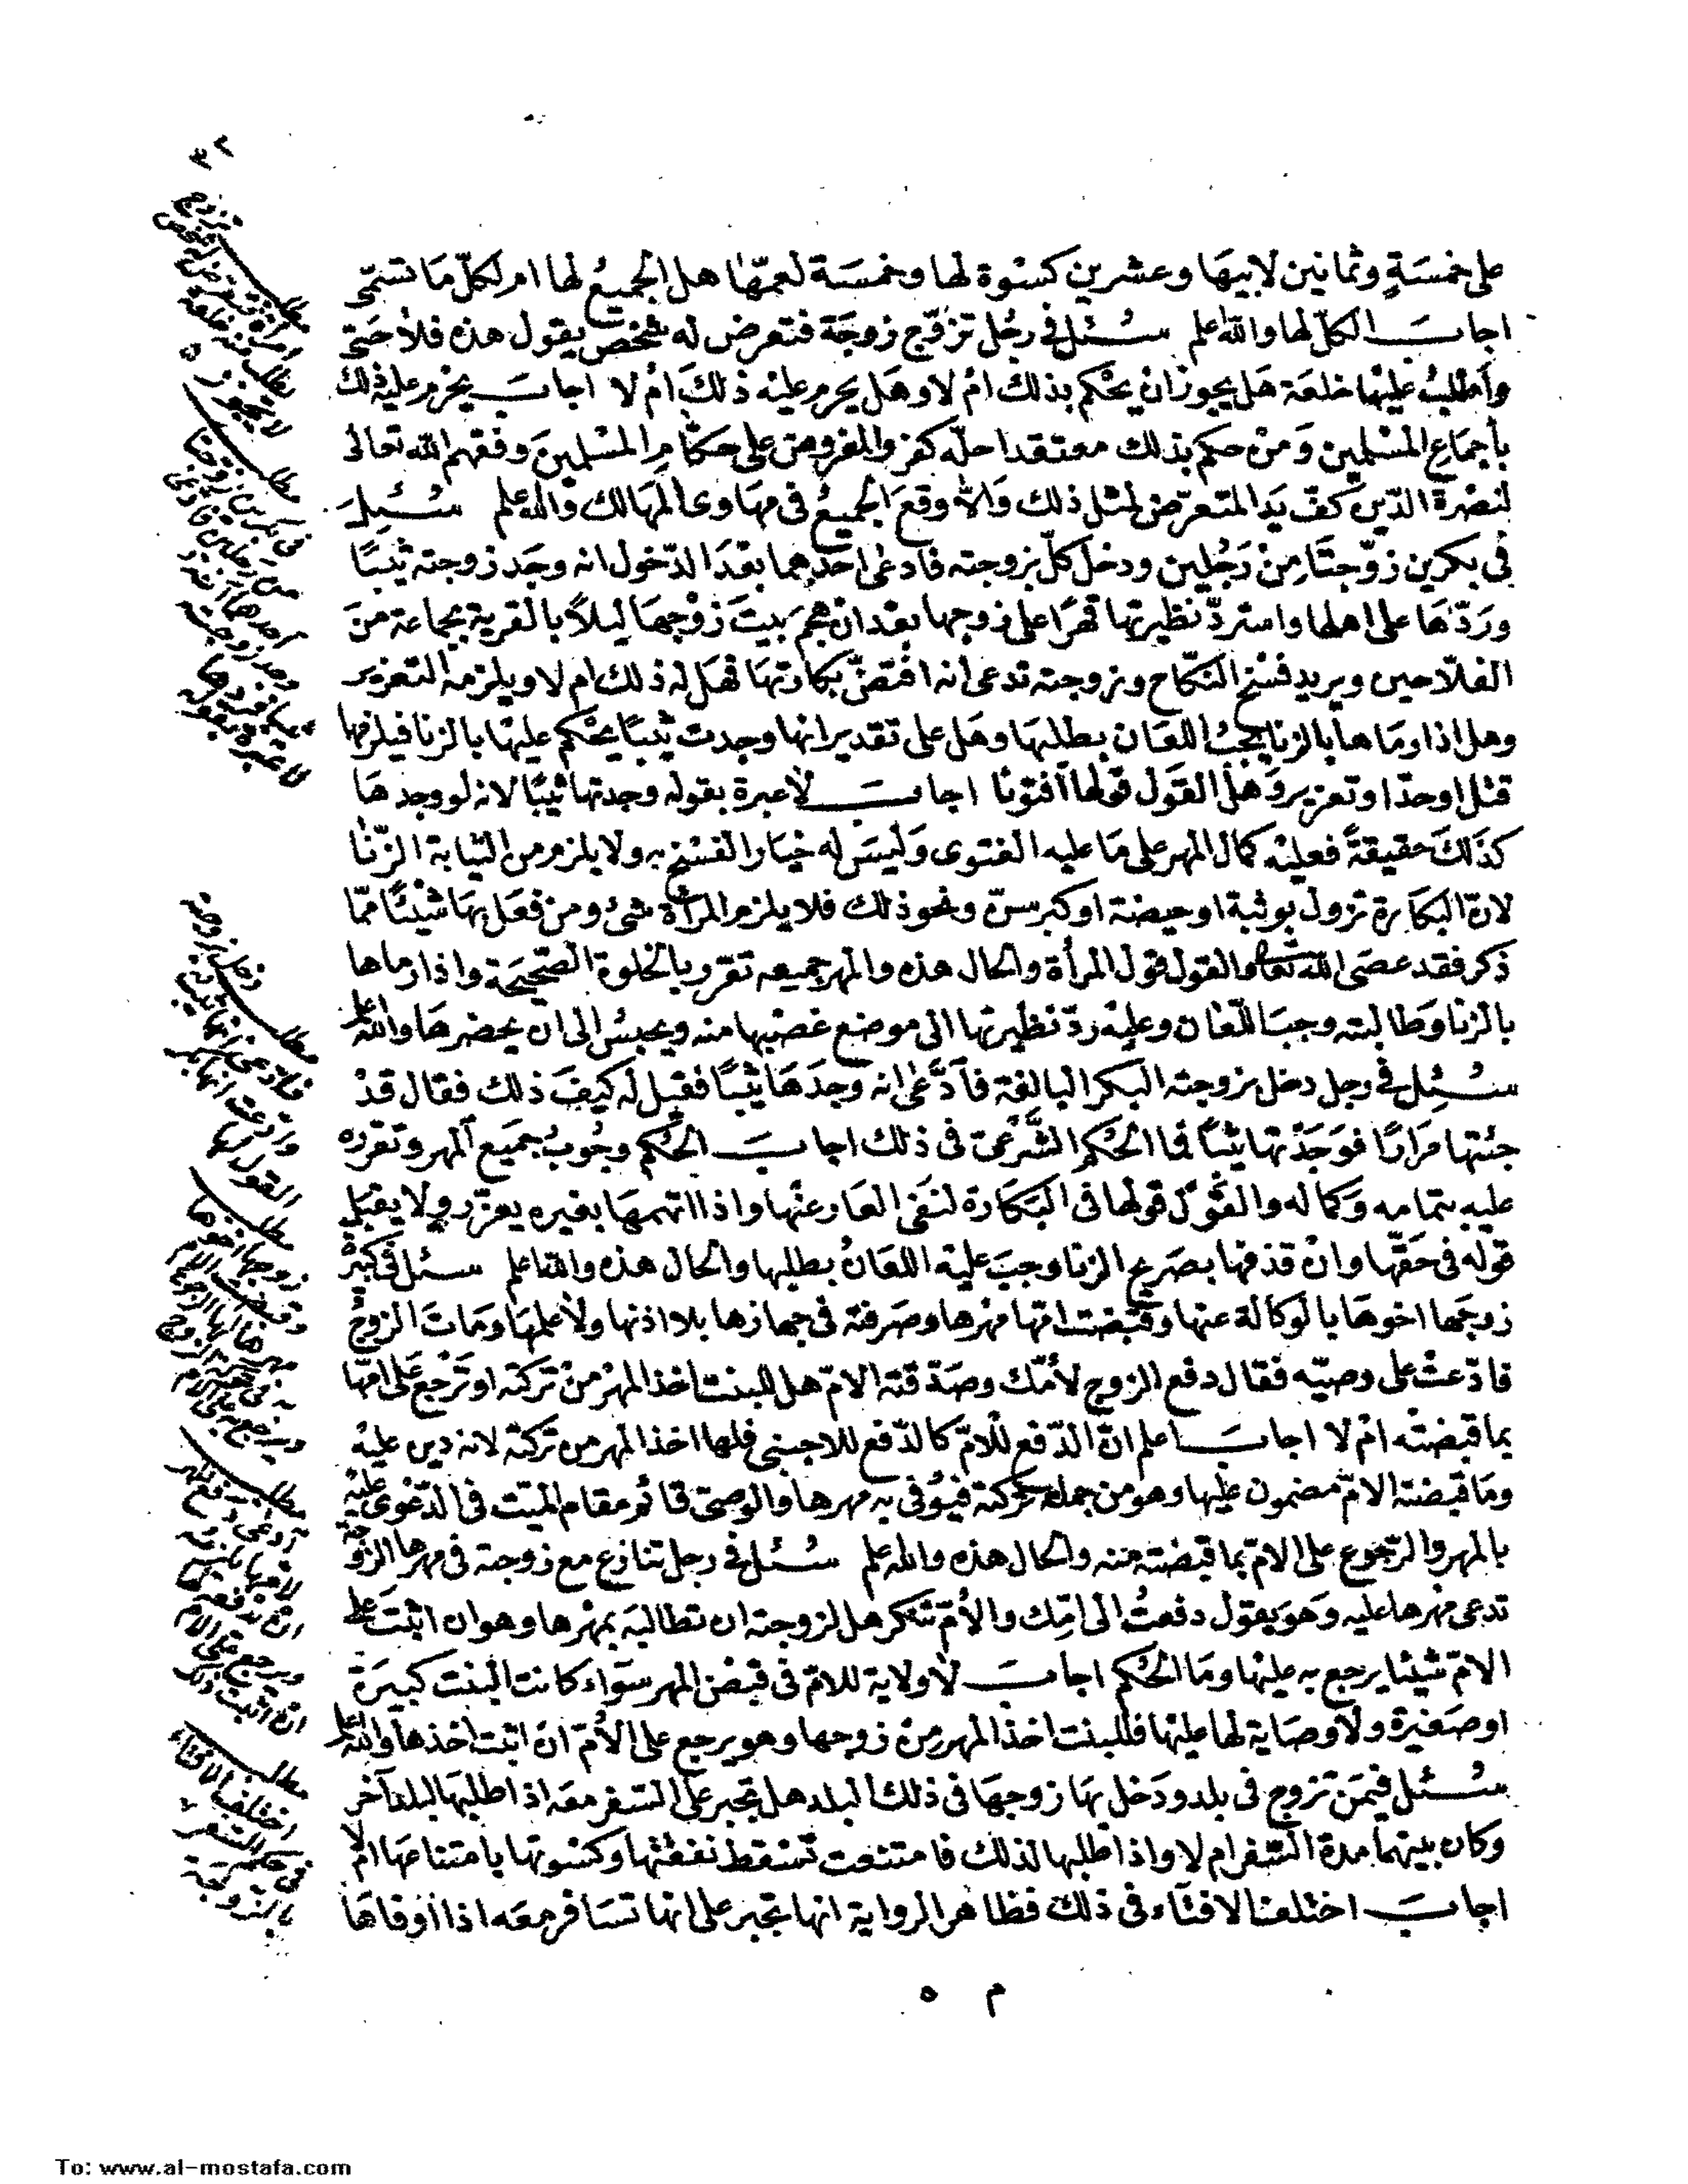 ٣٢
على خمسَةٍ وثمانين لابيهَا وعشرين كسْوة لها وخمسَة لعمّها هل الجميعُ لها ام لكلّ مَا تسمّى
اجابَ الكلّ لها والله اعلم سُئل فى رجُل تزوّج زوجَة فتعرض له شخص يقول هذه فلاحتى
وأطلبُ عليْها خلعَة هَل يجوز انْ يحْكم بذلك امْ لا وهَل يحرم عليْه ذلكَ امْ لا اجابَ يحْرم عليْه ذلك
بأجمَاع المسْلمين وَمنْ حكم بذلك معتقدا حلّه كفر والمفروض على حكّام المسْلمينَ وفقهم الله تعالى
لنصْرة الدّين كفّ يَد المتعرّض لمثل ذلك وَالّا وقعَ الجميعُ فى مهَاوى المهَالك والله اعلم سُئِلَ
فى بكرين زوّجتَا مِنْ رَجُلين ودخل كلّ بزوجته فادعى احَدهما بعْدَ الدّخول انه وجَد زوجته ثيّبًا
ورَدّهَا على اهلها واستردّ نظيرتها قهرًا على زوجها بعْد ان هجم بيتَ زوْجهَا ليلاً بالقرية بجماعة منَ
الفلّاحين ويريد فسْخ النكاح وزوجته تدعى انه افتضّ بكارتهَا فهَل له ذلك ام لا ويلزمه التعزير
وهل اذا رمَاها بالزنا يجبُ اللعَان بطلبهَا وهَل على تقدير انها وجدت ثيّبًا يحْكم عليْها بالزنا فيلزمها
قتل اوحدّ او تعزير وَهَل القوَل قولها أفتونا اجابَ لا عبرة بقوله وجدتها ثيّبًا لانه لو وجدهَا
كذلكَ حقيقةً فعليْه كمال المهر على مَا عليه الفتوى وَليسَ له خيَار الفسْخ به ولا يلزم من الثيابة الزّنا
لانّ البكاَرة تزول بوثبة اوحيضة اوكبر سنّ ونحو ذلك فلا يلزم المرْأة شئ ومن فعَل بهَا شيْئًا ممّا
ذكر فقد عصَى الله تعالى والقول قول المرأة والحال هذه والمهر جميعه تقرر بالخلوة الصّحيحَة واذا رماها
بالزنا وَطالبته وجبَ اللّعان وعليْه ردّ نظيرتها الى موضع غصبها منه ويحبسُ الى ان يحضرهَا والله اعلم
سُئِل فى رجل دخل بزوجته البكر البالغة فادَّعى انه وجدَهَا ثيّبًا فقيل له كيفَ ذلك فقال قدْ
جئتها مرَارًا فوَجَدْتها ثيّباً فما الحُكم الشّرعىّ فى ذلك اجابَ الحُكم وجُوبُ جميَع المهر وتقرره
عليه بتمامه وَكماله والقوْل قولها فى البَكَارة لنفى العَار عنْها واذا اتهمهَا بغيره يعزّر ولا يقبل
قوله فى حَقّها وانْ قذفها بصَريح الزنا وجبَ عليْه اللعَانُ بطلبها والحال هذه والله اعلم سئل فى كبيرة
زوجَها اخوهَا بالوكالة عنها وقبَضت امّها مهْرها وصَرفته فى جهازها بلا اذنها ولاَ علمهَا ومَاتَ الزوجُ
فادّعتْ على وصيّه فقال دفع الزوج لأمّك وصَدّقته الامّ هل للبنت اخذ المهْر منْ تركته او تَرْجع عَلى امّها
بما قبضته امْ لا اجابَ اعلم انّ الدّفع للامّ كالدّفع للاجنبى فلها اخذ المهر من تركته لانه دين عليْه
ومَا قبَضته الامّ مضمون عليْها وهو من جملة تركته فيُوفى به مهرها والوصىّ قائم مقام الميّت فى الدّعْوى عليْه
بالمهر والرّجوع على الامّ بما قبَضته منه والحال هذه والله اعلم سُئل فى رجل تنازع مع زوجته فى مهرها الزوجة
تدعى مهرها عليه وَهوَ يقول دفعتُ الى امّك والأمّ تنكر هل لزوجته ان تطالبَه بمهْرها وهو ان اثبتَ على
الامّ شيْئا يرجع به عليْها ومَا الحُكم اجابَ لا ولاية للامّ فى قبْض المهر سوَاء كانت البنت كبيرَة
اوصَغيرة ولاَ وصَاية لها عليْها فللبنت اخذ المهْر مِنْ زوجها وهو يرجع على الأمّ ان اثبت اخذها والله اعلم
سُئل فيمَن تزوج فى بلد ودَخل بهَا زوجهَا فى ذلك البلد هل تجبر على السّفر معَه اذ اطلبهَا لبلد آخر
وكان بينهما مدة السّفر ام لا واذا طلبها لذلك فامتنعت تسْقط نفقتها وكسْوتها بامتناعهَا امْ لا
اجابَ اختلف الافتاء فى ذلك فظاهر الرواية انها تجبر على انها تسَافر معَه اذا أوفاهَا
مطلب
لا يجوز
مطلب
فى بكرين زوّجتا
من رجلين فادعى
احدهما انه
وجد زوجته
ثيبا فردها
لا عبرة بقوله
مطلب
فادعى انها ثيب
وادعت انها بكر
القول لها
مطلب
زوجها اخوها
وقبضت الام
مهرها
مطلب
ويرجع على الام
ان اثبت ذلك
مطلب
اختلف الافتاء
فى حكم السّفر
بالزوجة
م ٥
To: www.al-mostafa.com